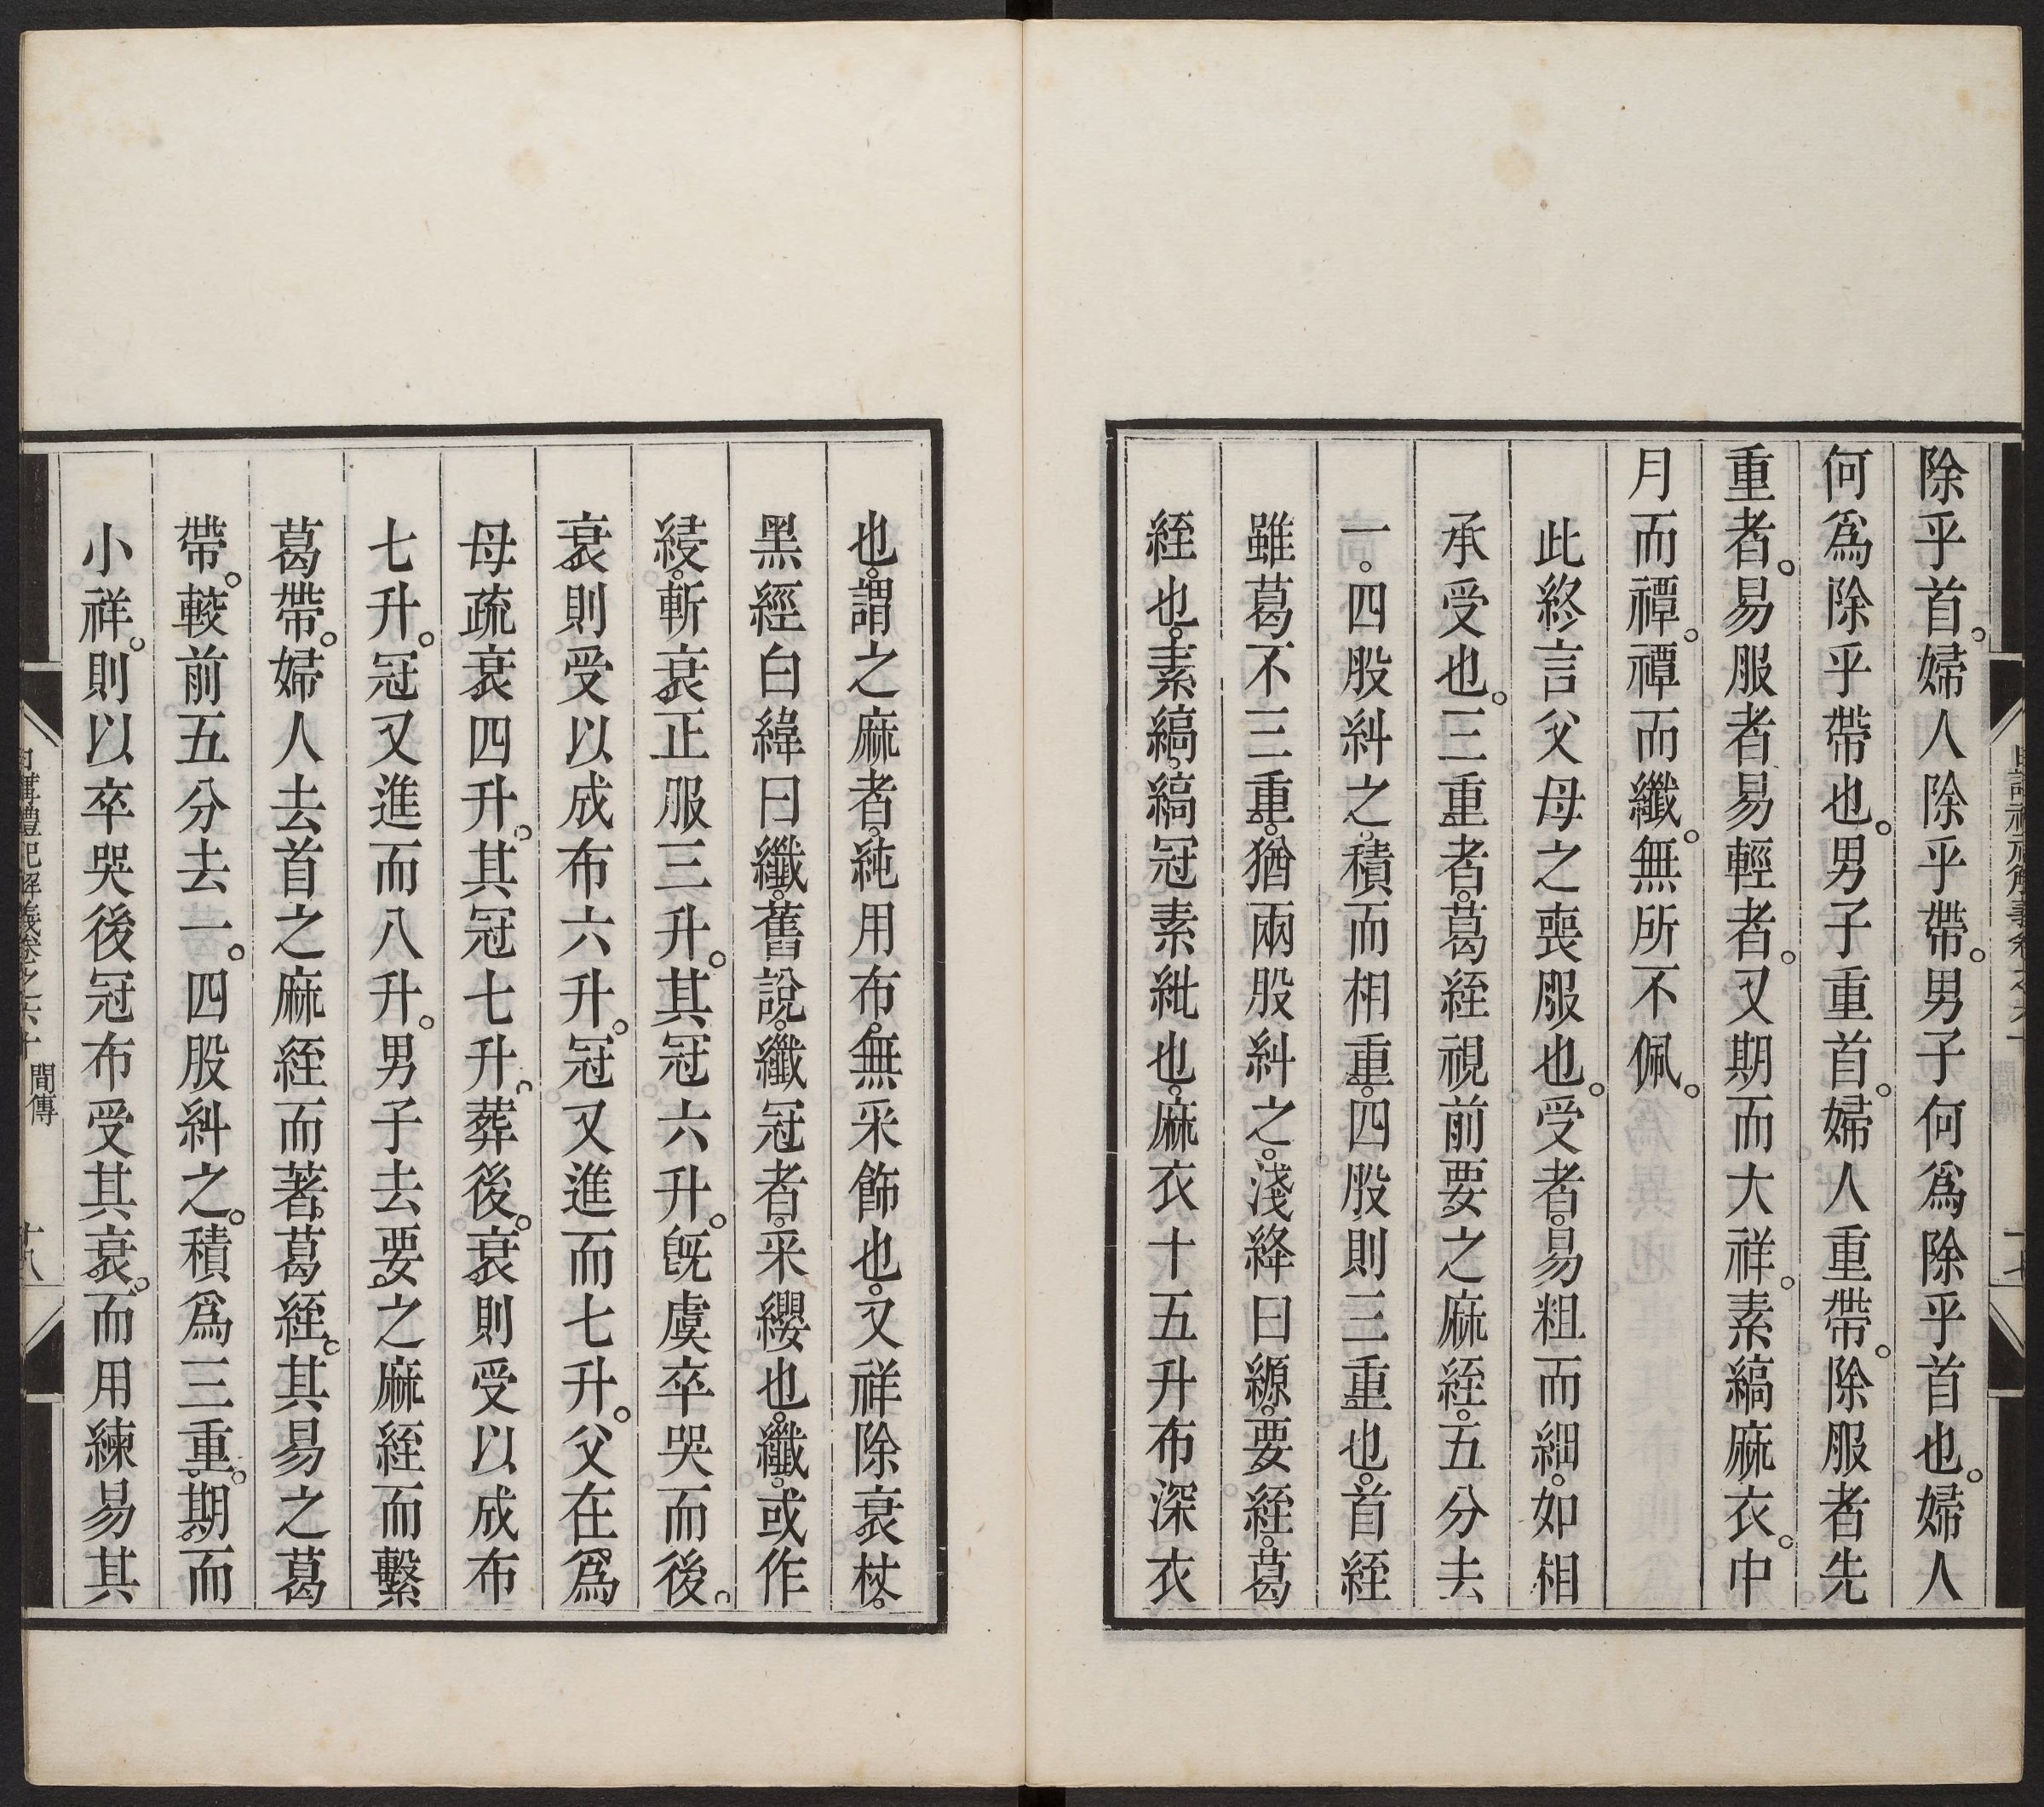 除乎首。婦人除乎帶。男子何爲除乎首也。婦人
何爲除乎帶也。男子重首。婦人重帶。除服者先
重者。易服者易輕者。又期而大祥。素縞麻衣。中
月而禫。禫而纖。無所不佩。
此終言父母之喪服也。受者。易粗而細。如相
承受也。三重者。葛絰視前要之麻絰。五分去
一。四股糾之。積而相重。四股則三重也。首絰
雖葛不三重。猶兩股糾之。淺絳曰縓。要絰。葛
絰也。素縞。縞冠素紕也。麻衣十五升布深衣
也。謂之麻者。純用布。無采飾也。又祥除衰杖。
黑經白緯曰纖。舊說。纖冠者。采纓也。纖。或作
綅。斬衰正服三升。其冠六升。旣虞卒哭而後。
衰則受以成布六升。冠又進而七升。父在。爲
母疏衰四升。其冠七升。葬後。衰則受以成布
七升。冠又進而八升。男子去要之麻絰而繫
葛帶。婦人去首之麻絰而著葛絰。其易之葛
帶。較前五分去一。四股糾之。積爲三重。期而
小祥。則以卒哭後冠布受其衰。而用練易其
日講禮記解義卷之六十 間傳 十八